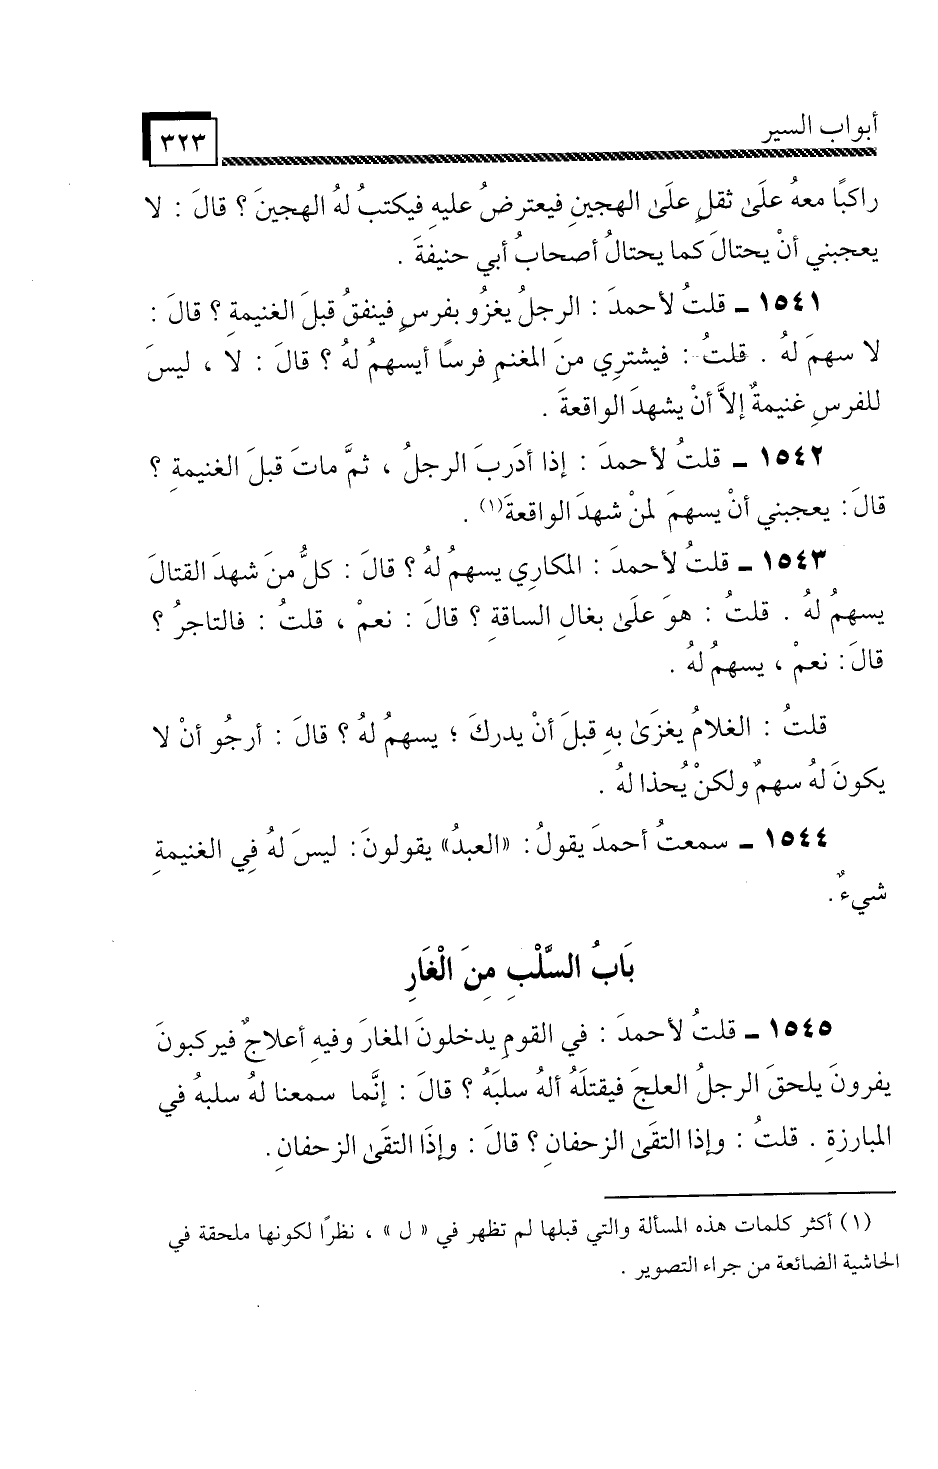 أبواب السير
٣٢٣
راكبًا معهُ علَى ثقلٍ علَى الهجينِ فيعترضُ عليهِ فيكتبُ لهُ الهجينَ ؟ قالَ : لا
يعجبني أنْ يحتالَ كما يحتالُ أصحابُ أبي حنيفةَ .
١٥٤١ ـ قلتُ لأحمدَ : الرجلُ يغزُو بفرسٍ فينفقُ قبلَ الغنيمةِ ؟ قالَ :
لا سهمَ لهُ . قلتُ : فيشتري منَ المغنمِ فرسًا أيسهمُ لهُ ؟ قالَ : لا ، ليسَ
للفرسِ غنيمةٌ إلاَّ أنْ يشهدَ الواقعةَ .
١٥٤٢ ـ قلتُ لأحمدَ : إذا أدَربَ الرجلُ ، ثمَّ ماتَ قبلَ الغنيمةِ ؟
قالَ : يعجبني أنْ يسهمَ لمنْ شهدَ الواقعةَ(١) .
١٥٤٣ ـ قلتُ لأحمدَ : المكاري يسهمُ لهُ ؟ قالَ : كلُّ منَ شهدَ القتالَ
يسهمُ لهُ . قلتُ : هوَ علَى بغالِ الساقةِ ؟ قالَ : نعمْ ، قلتُ : فالتاجرُ ؟
قالَ : نعمْ ، يسهمُ لهُ .
قلتُ : الغلامُ يغزَى بهِ قبلَ أنْ يدركَ ؛ يسهمُ لهُ ؟ قالَ : أرجُو أنْ لا
يكونَ لهُ سهمٌ ولكنْ يُحذا لهُ .
١٥٤٤ ـ سمعتُ أحمدَ يقولُ : «العبدُ» يقولونَ : ليسَ لهُ فِي الغنيمةِ
شيءٌ .
بَابُ السَّلْبِ مِنَ الْغَارِ
١٥٤٥ ـ قلتُ لأحمدَ : في القومِ يدخلونَ المغارَ وفيهِ أعلاجٌ فيركبونَ
يفرونَ يلحقَ الرجلُ العلجَ فيقتلَهُ ألهُ سلبَهُ ؟ قالَ : إنَّما سمعنا لهُ سلبهُ في
المبارزةِ . قلتُ : وإذا التقَى الزحفانِ ؟ قالَ : وإذَا التقَى الزحفانِ .
(١) أكثر كلمات هذه المسألة والتي قبلها لم تظهر في « ل » ، نظرًا لكونها ملحقة في
الحاشية الضائعة من جراء التصوير .